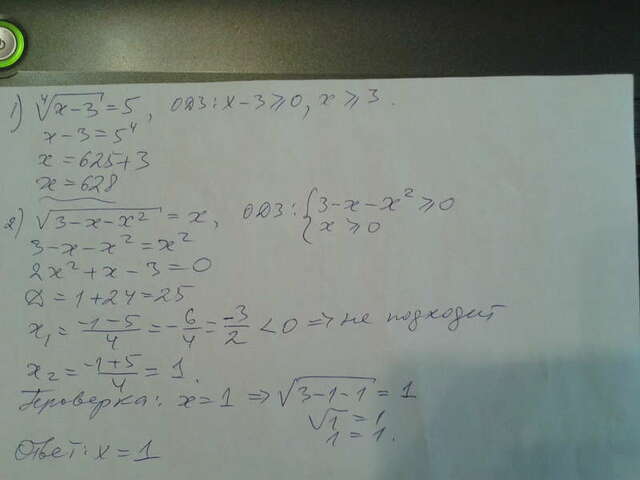 1) ⁴√(x-3) = 5, ОДЗ: x-3 ≥ 0, x ≥ 3.
x-3 = 5⁴
x = 625+3
x = 628
2) √(3-x-x²) = x, ОДЗ: { 3-x-x² ≥ 0
x ≥ 0
3-x-x² = x²
2x²+x-3 = 0
D = 1+24 = 25
x₁ = (-1-5)/4 = -6/4 = -3/2 < 0 ⇒ не подходит
x₂ = (-1+5)/4 = 1.
Проверка: x = 1 ⇒ √(3-1-1) = 1
√1 = 1
1 = 1.
Ответ: x = 1